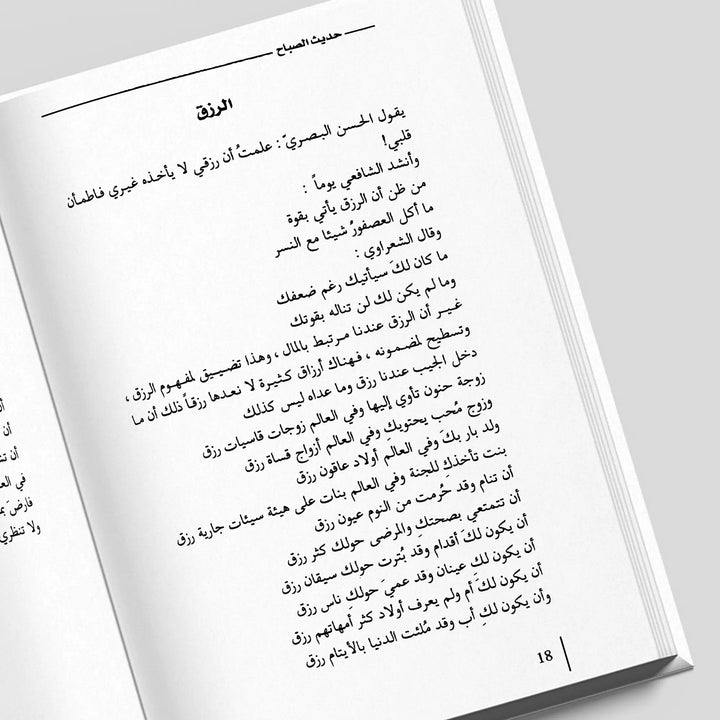 حديث الصباح
الرزق
يقول الحسن البصريّ : علمتُ أن رزقي لا يأخذه غيري فاطمأن
قلبي!
وأنشد الشافعي يوماً :
من ظن أن الرزق يأتي بقوة
ما أكل العصفورُ شيئا مع النسر
وقال الشعراوي :
ما كان لكَ سيأتيك رغم ضعفك
وما لم يكن لك لن تناله بقوتك
غير أن الرزق عندنا مرتبط بالمال ، وهذا تضييق لمفهوم الرزق ،
وتسطيح لمضمونه ، فهناك أرزاق كثيرة لا نعدها رزقاً ذلك أن ما
دخل الجيب عندنا رزق وما عداه ليس كذلك
زوجة حنون تأوي إليها وفي العالم زوجات قاسيات رزق
وزوج مُحب يحتويكِ وفي العالم أزواج قساة رزق
ولد بار بكَ وفي العالم أولاد عاقون رزق
بنت تأخذكِ للجنة وفي العالم بنات على هيئة سيئات جارية رزق
أن تنام وقد حُرمت من النوم عيون رزق
أن تتمتعي بصحتكِ والمرضى حولك كثر رزق
أن يكون لكَ أقدام وقد بُترت حولك سيقان رزق
أن يكون لكِ عينان وقد عميَ حولكِ ناس رزق
أن يكون لكَ أم ولم يعرف أولاد كثر أمهاتهم رزق
وأن يكون لكِ أب وقد مُلئت الدنيا بالأيتام رزق
18
في
ولا تنظري